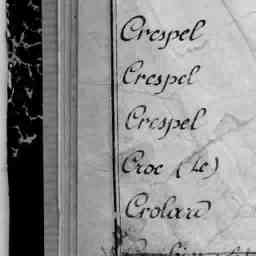 Crespel
Crespel
Crespel
Croc (Le)
Crolard